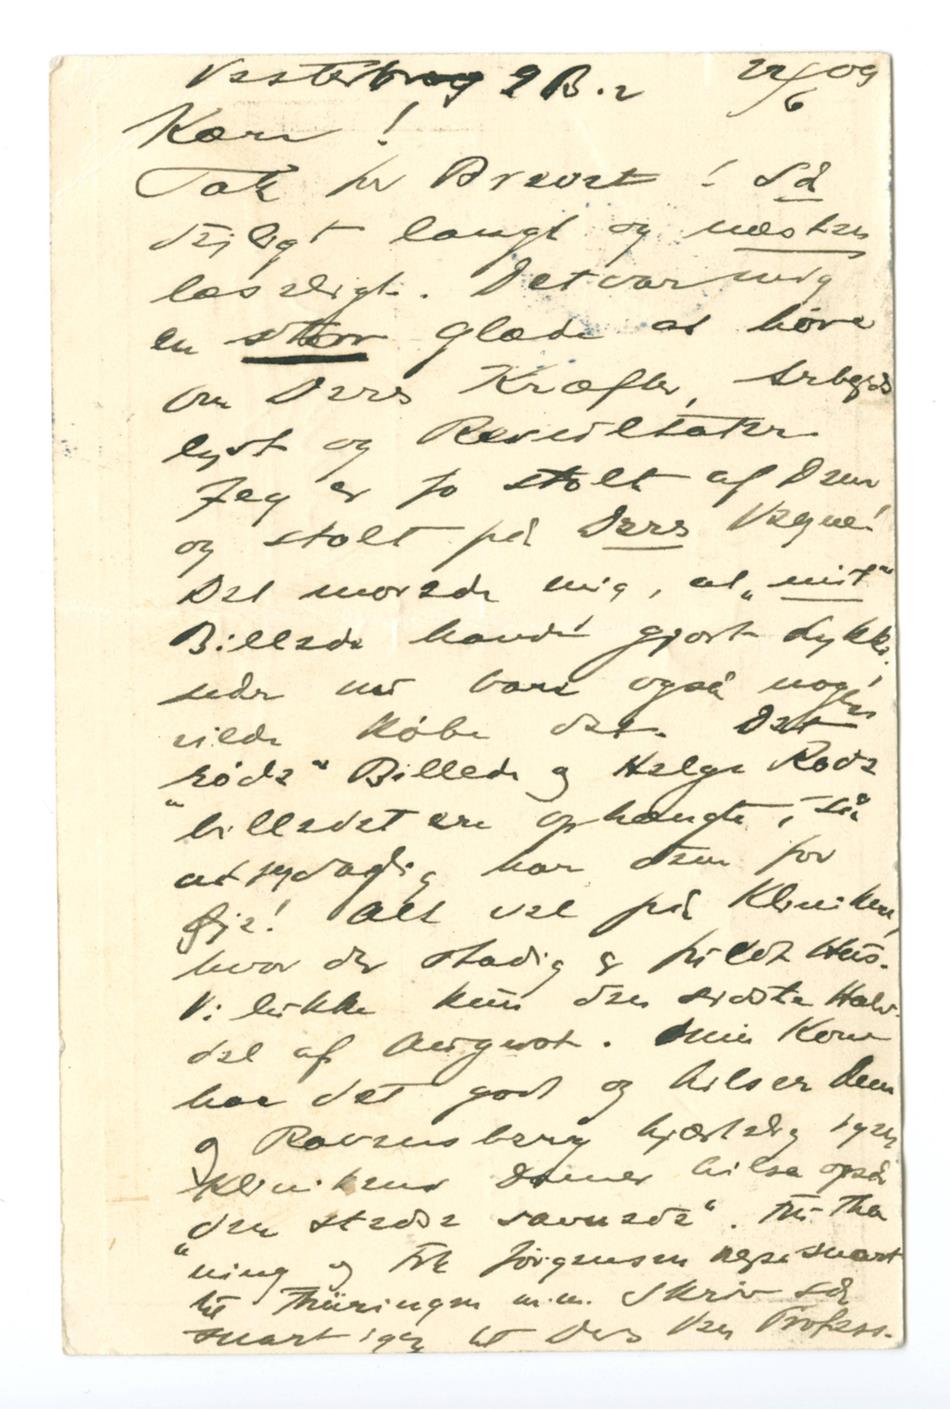 Vesterbrog 9 B. 2 22/6 09
Kære !
Tak for Brevet ! Så
dejligt langt og næsten
læseligt. Det var mig
en stor Glæde at høre
om Deres Kræfter, Arbejds
lyst og Resultater
Jeg er jo stolt af Dem
og stolt på Deres Vegne!
Det morede mig, at „mit“
Billede havde gjort Lykke,
vilde købe det. Det
røde“ Billede og Helge Rode
„billedet ere ophængte, så
at jeg daglig har dem for
Øje! Alt vel på Kliniken,
hvor der stadig er fuldt Hus.
Vi lukke kun den sidste Halv-
del af August. Min Kone
har det godt og hilser Dem
og Ravensberg hjærtelig igen
Klinikens Damer hilse også
den stedse savnede“. Frk Tha
„ning og Frk Jørgensen rejse snart
til Thüringen m.m. Skriv så
snart igen til Deres Ven Professo-